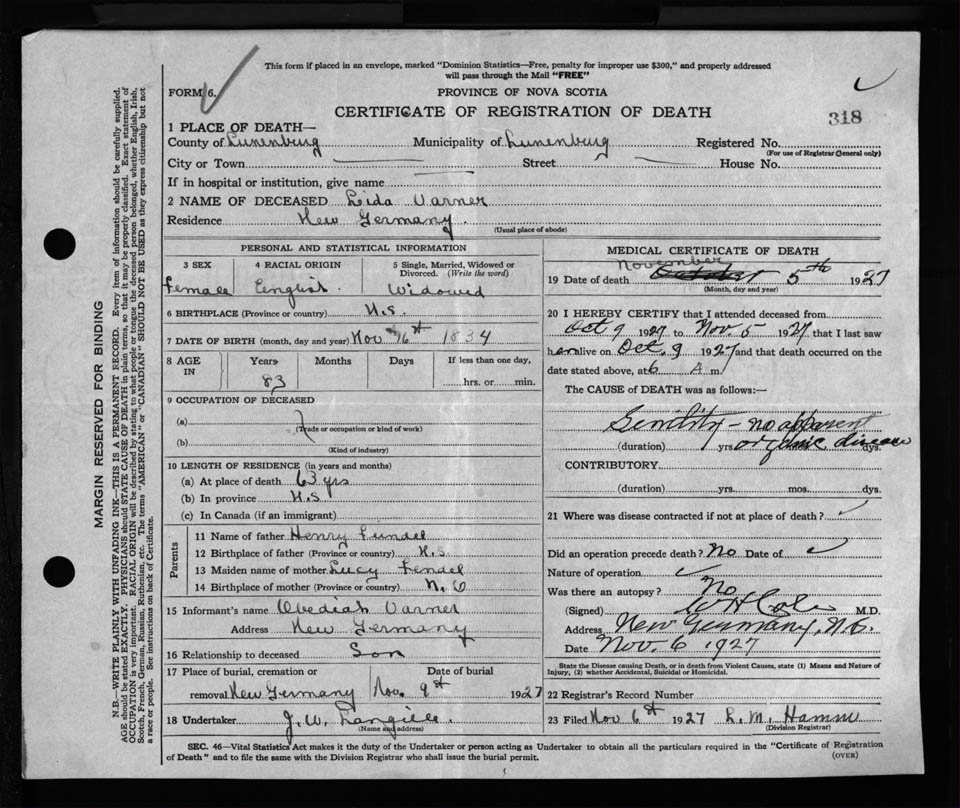 This form if placed in an envelope, marked "Dominion Statistics—Free, penalty for improper use $300," and properly addressed
will pass through the Mail "FREE"
FORM 6.
PROVINCE OF NOVA SCOTIA
CERTIFICATE OF REGISTRATION OF DEATH
318
1 PLACE OF DEATH—
County of Lunenburg Municipality of Lunenburg Registered No.
(For use of Registrar General only)
City or Town Street House No.
If in hospital or institution, give name
2 NAME OF DECEASED Lida Varner
Residence New Germany.
(Usual place of abode)
PERSONAL AND STATISTICAL INFORMATION
3 SEX 4 RACIAL ORIGIN 5 Single, Married, Widowed or
Divorced. (Write the word)
Female English. Widowed
6 BIRTHPLACE (Province or country) N.S.
7 DATE OF BIRTH (month, day and year) Nov 1834
8 AGE IN Years Months Days If less than one day,
83 hrs. or min.
9 OCCUPATION OF DECEASED
(a)
(Trade or occupation or kind of work)
(b)
(Kind of industry)
10 LENGTH OF RESIDENCE (in years and months)
(a) At place of death 63 yrs
(b) In province N.S
(c) In Canada (if an immigrant)
Parents
11 Name of father Henry
12 Birthplace of father (Province or country) N.S.
13 Maiden name of mother Lucy
14 Birthplace of mother (Province or country)
15 Informant's name Obediah Varner
Address New Germany
16 Relationship to deceased Son
17 Place of burial, cremation or Date of burial
removal New Germany Nov. 9th 1927
18 Undertaker J. W. Langille.
(Name and address)
MEDICAL CERTIFICATE OF DEATH
November
19 Date of death October 5th 1927
(Month, day and year)
20 I HEREBY CERTIFY that I attended deceased from
Oct 9 1927 to Nov. 5 1927 that I last saw
her alive on Oct. 9 1927 and that death occurred on the
date stated above, at 6 A m.
The CAUSE of DEATH was as follows:—
Senility – no apparent
(duration) yrs. organic disease dys.
CONTRIBUTORY.
(duration) yrs. mos. dys.
21 Where was disease contracted if not at place of death?
Did an operation precede death? No Date of
Nature of operation
Was there an autopsy? No
(Signed) W H Cole M.D.
Address New Germany, N.S.
Date Nov. 6 1927
State the Disease causing Death, or in death from Violent Causes, state (1) Means and Nature of
Injury, (2) whether Accidental, Suicidal or Homicidal.
22 Registrar's Record Number
23 Filed Nov 6th 1927 L. M. Hamm
(Division Registrar)
SEC. 46—Vital Statistics Act makes it the duty of the Undertaker or person acting as Undertaker to obtain all the particulars required in the "Certificate of Registration
of Death" and to file the same with the Division Registrar who shall issue the burial permit.
(OVER)
MARGIN RESERVED FOR BINDING
N.B.—WRITE PLAINLY WITH UNFADING INK—THIS IS A PERMANENT RECORD. Every item of information should be carefully supplied.
AGE should be stated EXACTLY. PHYSICIANS should STATE CAUSE OF DEATH in plain terms, so that it may be properly classified. Exact statement of
OCCUPATION is very important. RACIAL ORIGIN will be described by stating to what people or tongue the deceased person belonged, whether English, Irish,
Scotch, French, German, Russian, Ruthenian, etc. The terms "AMERICAN" or "CANADIAN" SHOULD NOT BE USED as they express citizenship but not
a race or people. See instructions on back of Certificate.